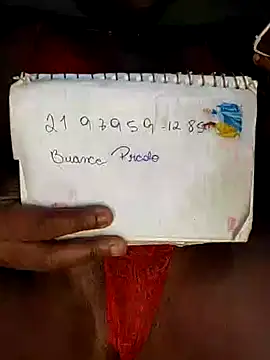 21 97959-1285
Buanca Prado